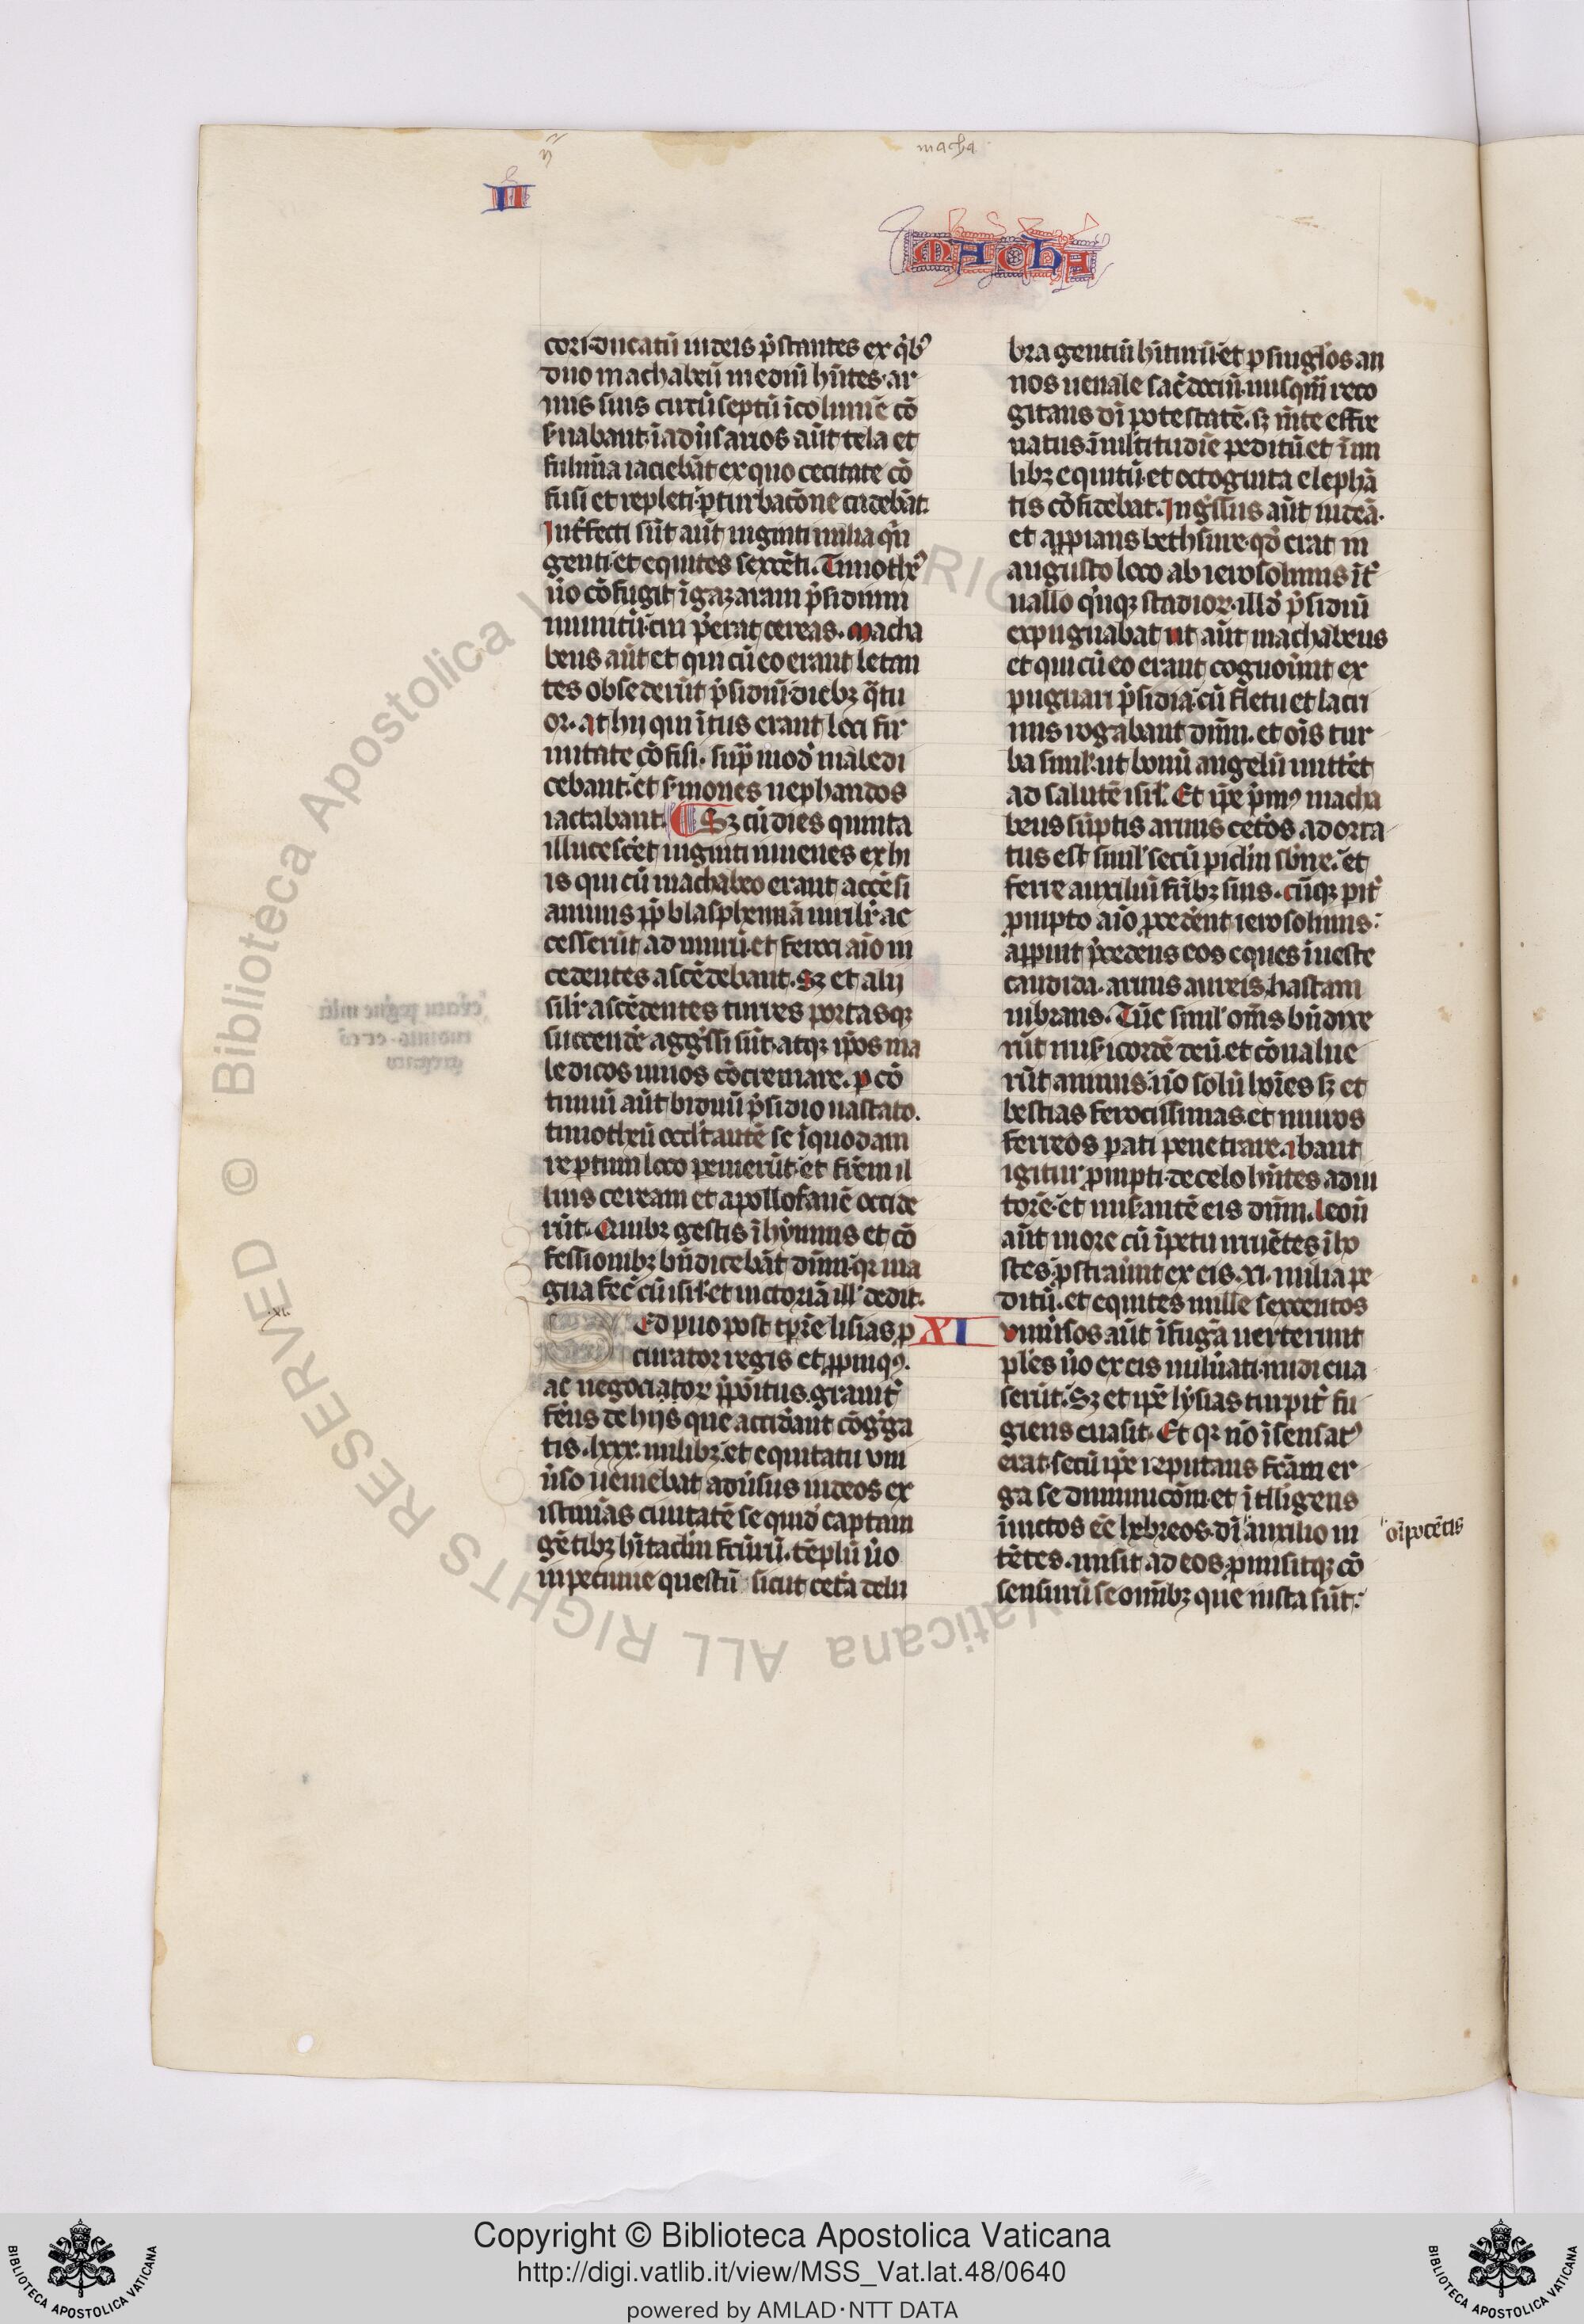 macha
II
MACHA
cori·ducatū iudeis p̄stantes ex q̇bꝰ
duo machabeū mediū hn̄tes·ar
mis suis circūseptū īcolumē cō
ẜuabant·ī adūsarios aūt tela et
fulmīa iaciebāt ex quo cecitate cō
fusi et repleti ꝑturbacōne cadebāt·
Int̄fecti sūt aūt uiginti milia qn̄
genti·et equites sexcēti. Timotheꝰ
ūo cōfugit ī gazaram p̄sidium
munitū·cui p̄erat cereas. Macha
beus aūt et qui cū eo erant letan
tes obsederūt p̄sidiū·diebꝫ q̄tu
or. At hii qui ītus erant loci fir
mitate cōfisi· sup̄ modū maledi
cebant·et ẜmones nephandos
iactabant. Sꝫ cū dies quinta
illucescet̄ uiginti iuuenes ex hi
is qui cū machabeo erant accēsi
animis ꝓp̄ blasphemiā uirilit̄ ac
cesserūt ad murū·et feroci aīo in
cedentes ascēdebant. Sꝫ et alij
silit̄ ascēdentes turres portasqꝫ
succendē aggssi sūt·atqꝫ ip̄os ma
ledicos uiuos cōcremare. ꝑ cō
tinuū aūt biduū p̄sidio uastato.
timotheū occltantē se ī quodam
reptum loco peremerūt·et fr̄em il
lius ceream et apollofanē occide
rūt. Quibꝫ gestis ī hymnis et cō
fessionibꝫ bn̄dicebāt dn̄m·qꝛ ma
gna fec̄ cū isrl̄·et uictoriā ill̄ dedit.
·XI·
Sed puo post tp̄re lisias ꝓ XI
curator regis et ꝓpinqꝰ.
ac negociatoꝝ p̄po͡itus·grauit̄
ferēs de hijs que accid̄ant cōḡga
tis·lxxx·milibꝫ·et equitatu vni
ūso ueniebat adūsus iudeos ex
istimās ciuitatē se quid̄ captam
gētibꝫ hītaclm̄ fcūrū. tēplū ūo
in pecunie questū sicut cet̄a delu
bra gentiū hītuū·et ꝑ singlo̍s an
nos uenale sac̄dociū·nusqm̄ reco
gitans dī potestatē. sꝫ mēte effre
natus·ī mlt̄itudīe peditū·et ī mi
libꝫ equitū·et octoginta elephā
tis cōfidebat. Ing̍ssus aūt iudeā·
et apꝓpians bethsure·qd̄ erat in
augusto loco ab ierosolimis īt̄
uallo q̍nqꝫ stadioꝝ·illd̄ p̄sidiū
expugnabat ut aūt machabeus
et qui cū eo erant cognoūnt ex
pugnari p̄sidia·cū fletu et lacri
mis rogabant dn̄m. et oīs tur
ba siml̄·ut bonū angelū mittet̄
ad salutē isrl̄. Et ip̄e p̍mꝰ macha
beus sūptis armis cet̄os adorta
tus est siml̄ secū picl̄m sb̄ire·et
ferre auxiliū fr̄ibꝫ suis. Cūqꝫ pit̄
ꝓmpto aīo ꝓcedēnt ierosolimis:
apꝑuit p̄cedens eos eques ī ueste
candida·armis aureis·hastam
uibrans. Tūc siml̄ om̄s bn̄dixe
rūt miẜicordē deū·et cōualue
rūt animis·nō solū hoīes sꝫ et
bestias ferocissimas·et muros
ferreos pati penetrare. ibant
igitur ꝓmpti·de celo hn̄tes adiu
torē·et miẜantē eis dn̄m. Leonū
aūt more cū īpetu irruētes ī ho
stes·ꝓstraūnt ex eis·xi·milia pe
ditū·et equites mille sexcentos
vniūsos aūt ī fugā uerterunt
ples ūo ex eis uulnāti·nudi eua
serūt. Sꝫ et ip̄e lysias turpit̄ fu
giens euasit. Et qꝛ nō īsensatꝰ
erat·secū ip̄e reputans fcām er
ga se diminucōm·et ītelligens
īuictos eē hebreos·dī auxilio in
om̄ipotētis
tētes·misit ad eos·ꝓmisitqꝫ cō
sensurū se om̄ibꝫ que iusta sūt:
© Biblioteca Apostolica Vaticana ALL RIGHTS RESERVED
Copyright © Biblioteca Apostolica Vaticana
http://digi.vatlib.it/view/MSS_Vat.lat.48/0640
powered by AMLAD·NTT DATA
BIBLIOTECA APOSTOLICA VATICANA
BIBLIOTECA APOSTOLICA VATICANA